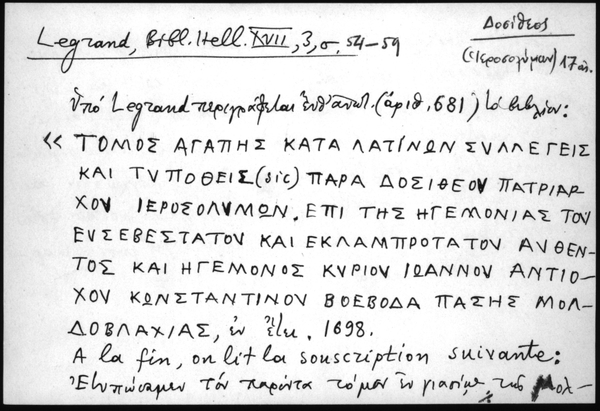 Legrand, Bibl. Hell. XVII, 3, σ. 54–59
Δοσίθεος
(Ἱεροσολύμων) 17 αἰ.
Ὑπὸ Legrand περιγράφεται (ἀριθ. 681) τὸ βιβλίον:
« ΤΟΜΟΣ ΑΓΑΠΗΣ ΚΑΤΑ ΛΑΤΙΝΩΝ ΣΥΛΛΕΓΕΙΣ
ΚΑΙ ΤΥΠΟΘΕΙΣ (sic) ΠΑΡΑ ΔΟΣΙΘΕΟΥ ΠΑΤΡΙΑΡ
ΧΟΥ ΙΕΡΟΣΟΛΥΜΩΝ. ΕΠΙ ΤΗΣ ΗΓΕΜΟΝΙΑΣ ΤΟΥ
ΕΥΣΕΒΕΣΤΑΤΟΥ ΚΑΙ ΕΚΛΑΜΠΡΟΤΑΤΟΥ ΑΥΘΕΝ-
ΤΟΣ ΚΑΙ ΗΓΕΜΟΝΟΣ ΚΥΡΙΟΥ ΙΩΑΝΝΟΥ ΑΝΤΙΟ-
ΧΟΥ ΚΩΝΣΤΑΝΤΙΝΟΥ ΒΟΕΒΟΔΑ ΠΑΣΗΣ ΜΟΛ-
ΔΟΒΛΑΧΙΑΣ, ἐν ἔτει. 1698.
A la fin, on lit la souscription suivante:
Ἐτυπώσαμεν τὸν παρόντα τόμον ἐν γιασίῳ τῆς Μολ-